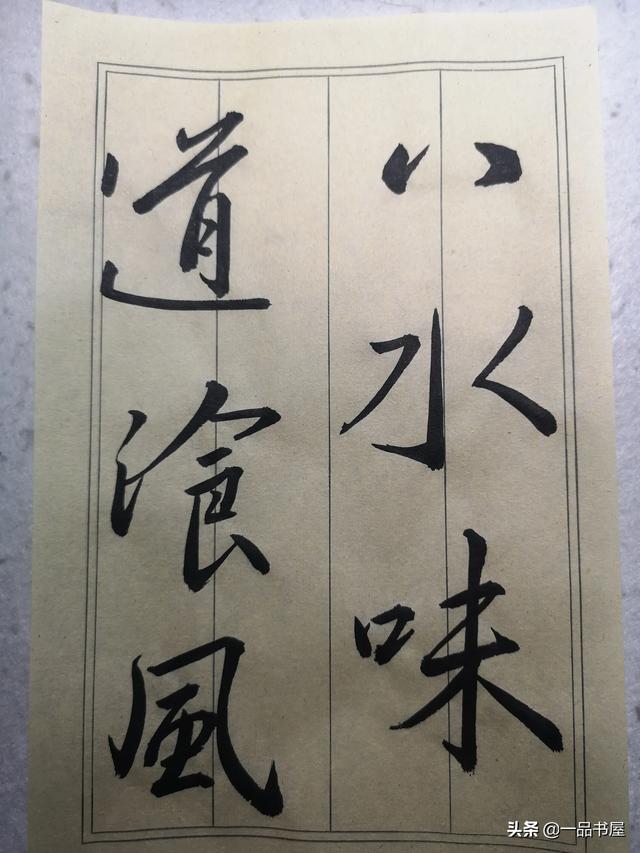 八水味
道飡風
头条 @一品书屋